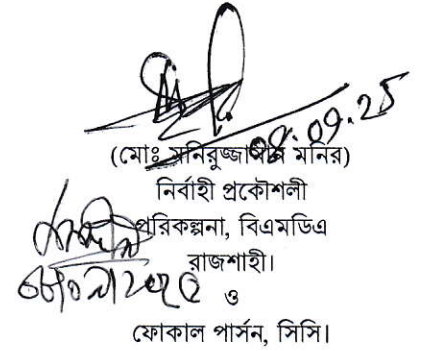 ০৪.০৭.২৫
(মোঃ মনিরুজ্জামান মনির)
নির্বাহী প্রকৌশলী
পরিকল্পনা, বিএমডিএ
রাজশাহী।
ও
ফোকাল পার্সন, সিসি।